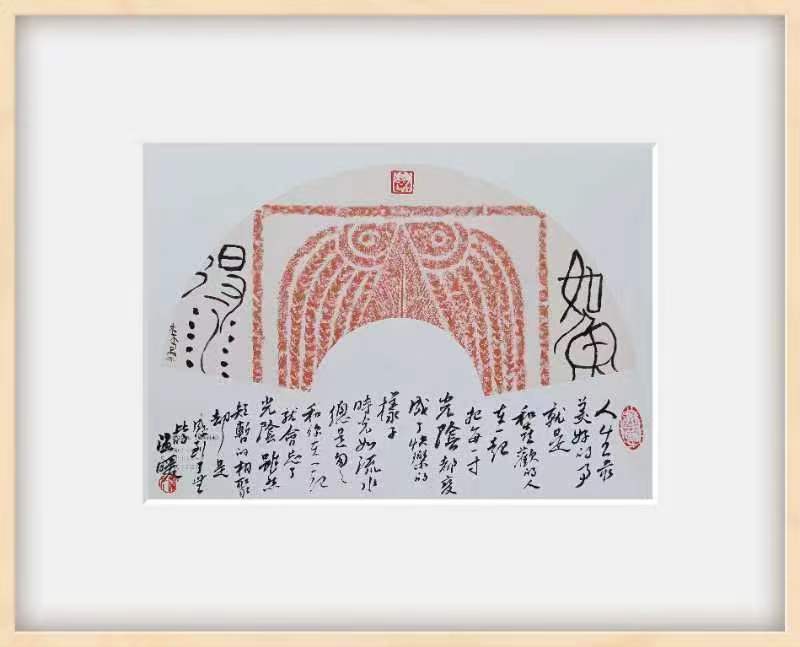 如魚
得水
人生最
美好的事
就是
和喜歡的人
在一起
把每一寸
光陰都變
成了快樂的
樣子
時光如流水
總是匆匆
和你在一起
就會忘了
光陰雖然
短暫的相聚
却是
感到了
温暖